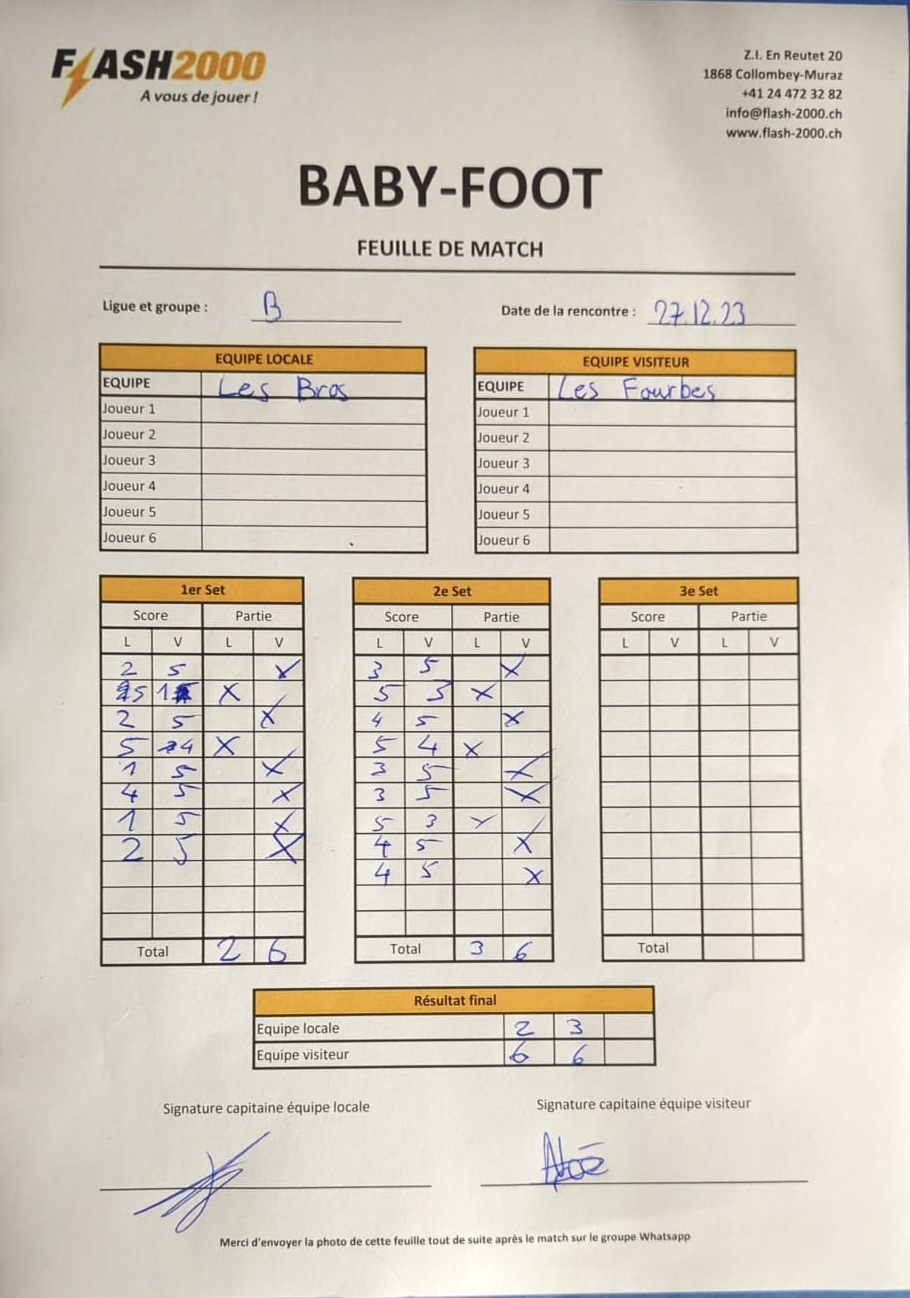 FLASH2000
A vous de jouer !
Z.I. En Reutet 20
1868 Collombey-Muraz
+41 24 472 32 82
info@flash-2000.ch
www.flash-2000.ch
BABY-FOOT
FEUILLE DE MATCH
Ligue et groupe : B
Date de la rencontre : 27.12.23
EQUIPE LOCALE
EQUIPE Les Bros
Joueur 1
Joueur 2
Joueur 3
Joueur 4
Joueur 5
Joueur 6
EQUIPE VISITEUR
EQUIPE Les Fourbes
Joueur 1
Joueur 2
Joueur 3
Joueur 4
Joueur 5
Joueur 6
1er Set
Score Partie
L V L V
2 5 X
5 1 X
2 5 X
5 4 X
1 5 X
4 5 X
1 5 X
2 5 X
Total 2 6
2e Set
Score Partie
L V L V
3 5 X
5 3 X
4 5 X
5 4 X
3 5 X
3 5 X
5 3 X
4 5 X
4 5 X
Total 3 6
3e Set
Score Partie
L V L V
Total
Résultat final
Equipe locale 2 3
Equipe visiteur 6 6
Signature capitaine équipe locale
Signature capitaine équipe visiteur
Merci d'envoyer la photo de cette feuille tout de suite après le match sur le groupe Whatsapp